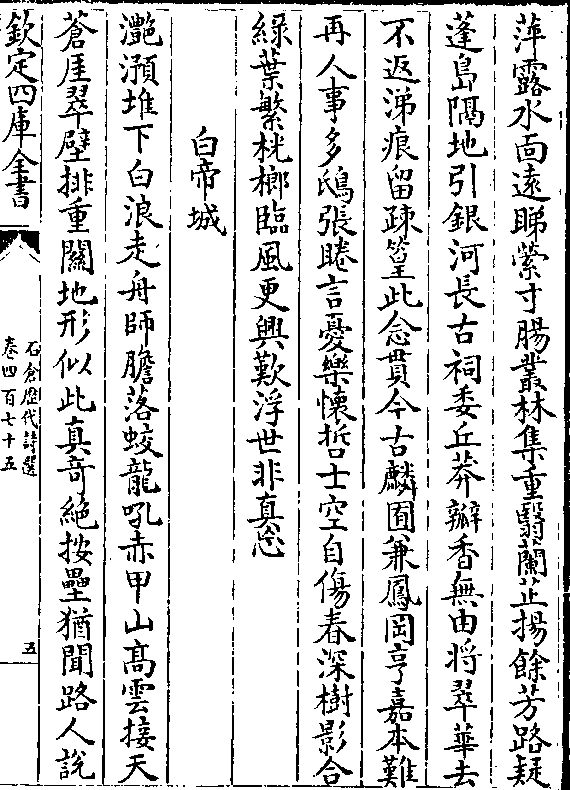 萍露水面遠睇縈寸腸叢林集重翳蘭芷揚餘芳路疑
蓬島隔地引銀河長古祠委丘莽瓣香無由将翠華去
不返涕痕留疎篁此念貫今古麟囿兼鳳岡亨嘉本難
再人事多鴟張睠言憂樂懷哲士空自傷春深樹影合
緑葉繁桄榔臨風更興歎浮世非真
白帝城
灔澦堆下白浪走舟師膽落蛟龍吼赤甲山髙雲接天
蒼厓翠壁排重關地形似此真竒絶按壘猶聞路人説
欽定四庫全書
石倉歴代詩選
卷四百七十五
五